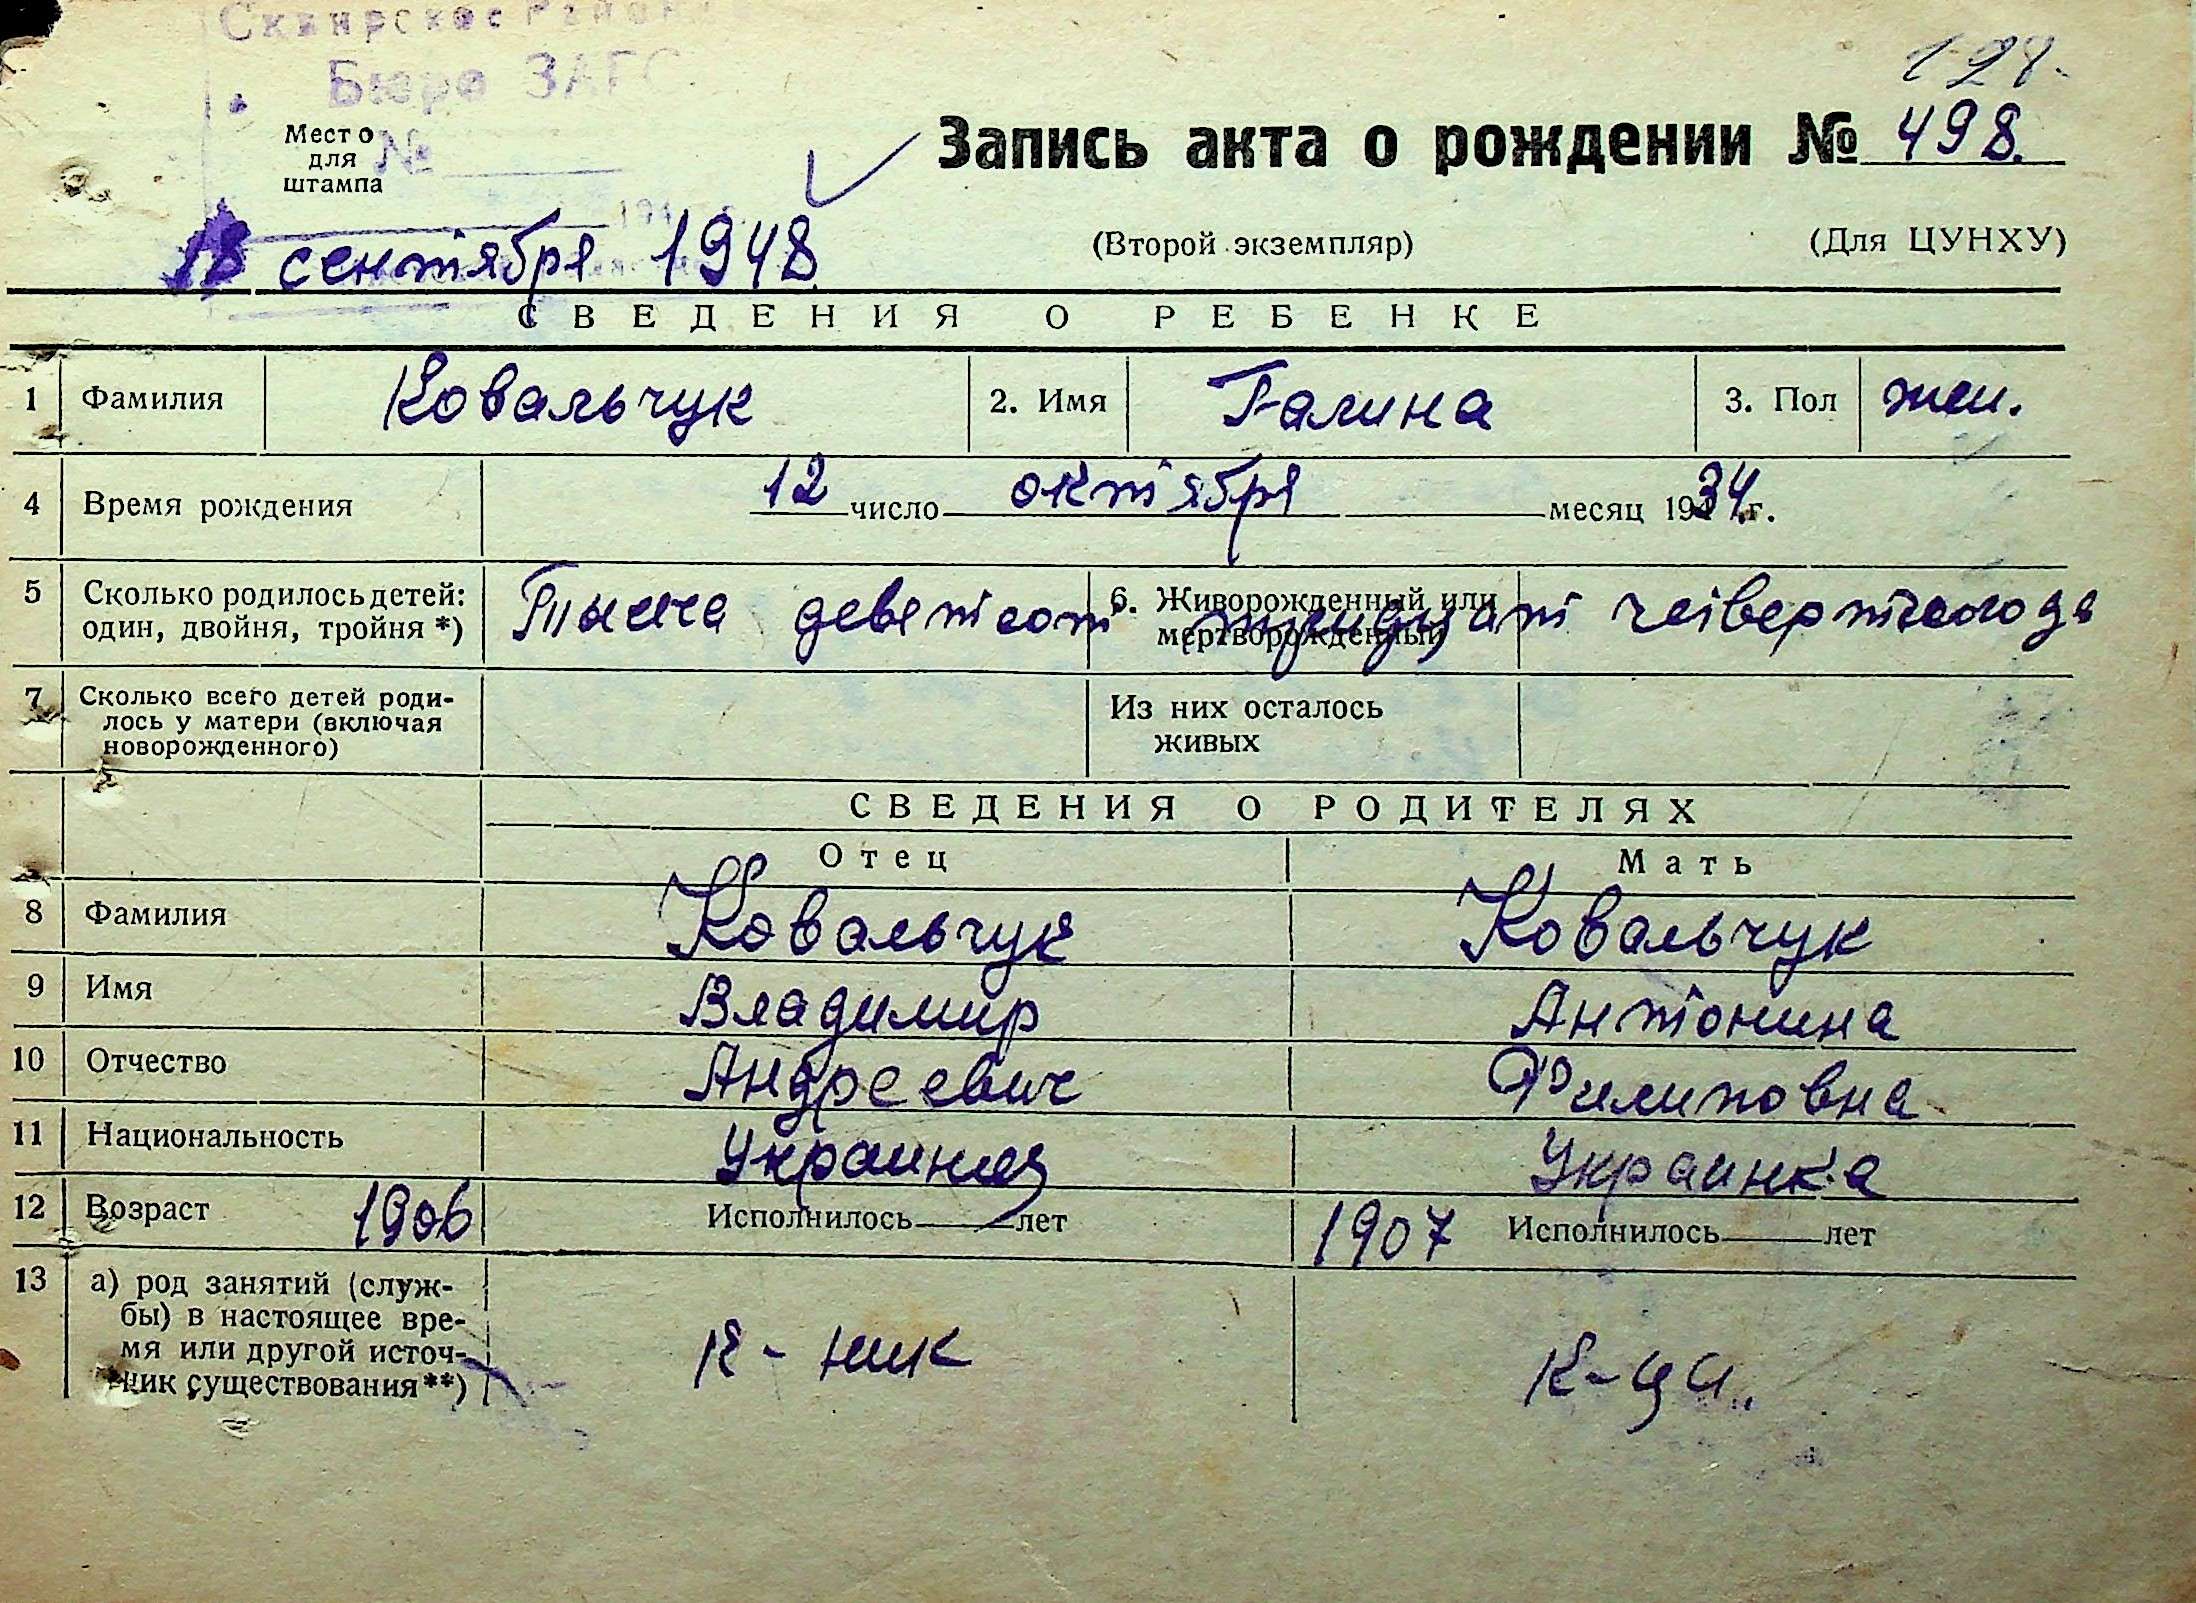 Сквирское Район
Бюро ЗАГС
128.
Место для штампа
№
Запись акта о рождении № 498.
18 сентября 1948
(Второй экземпляр)
(Для ЦУНХУ)
СВЕДЕНИЯ О РЕБЕНКЕ
1 Фамилия Ковальчук 2. Имя Галина 3. Пол жен.
4 Время рождения 12 число октября месяц 1934 г.
5 Сколько родилось детей: один, двойня, тройня *)
6. Живорожденный или мертворожденный
Тысяча девятсот тридцат четвертого года
7 Сколько всего детей роди-
лось у матери (включая
новорожденного)
Из них осталось
живых
СВЕДЕНИЯ О РОДИТЕЛЯХ
Отец Мать
8 Фамилия Ковальчук Ковальчук
9 Имя Владимир Антонина
10 Отчество Андреевич Филиповна
11 Национальность Украинец Украинка
12 Возраст 1906 Исполнилось лет 1907 Исполнилось лет
13 а) род занятий (служ-
бы) в настоящее вре-
мя или другой источ-
ник существования **)
к-ник к-ци.